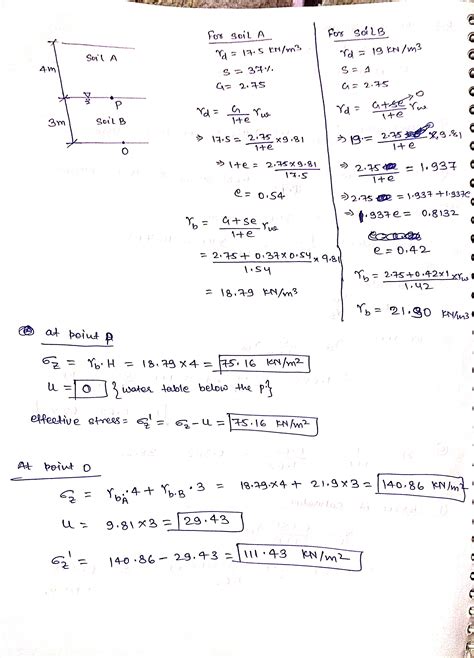 Soil A
4m
P
3m
Soil B
O
For soil A
γd = 17.5 KN/m³
S = 37%
G = 2.75
γd = G/(1+e) γw
⇒ 17.5 = 2.75/(1+e) × 9.81
⇒ 1+e = (2.75×9.81)/17.5
e = 0.54
γb = (G+Se)/(1+e) γw
= (2.75 + 0.37×0.54)/1.54 × 9.81
= 18.79 KN/m³
For soil B
γd = 19 KN/m³
S = 1
G = 2.75
γd = (G+Se→0)/(1+e) γw
⇒ 19 = 2.75/(1+e) × 9.81
⇒ 2.75/(1+e) = 1.937
⇒ 2.75 = 1.937 + 1.937e
⇒ 1.937e = 0.8132
e = 0.42
γb = (2.75+0.42×1)/1.42 × γw
γb = 21.90 KN/m³
at point P
σz = γb·H = 18.79×4 = 75.16 KN/m²
u = 0 {water table below the P}
effective stress = σz' = σz - u = 75.16 KN/m²
At point O
σz = γbA·4 + γb·B·3 = 18.79×4 + 21.9×3 = 140.86 KN/m²
u = 9.81×3 = 29.43
σz' = 140.86 - 29.43 = 111.43 KN/m²